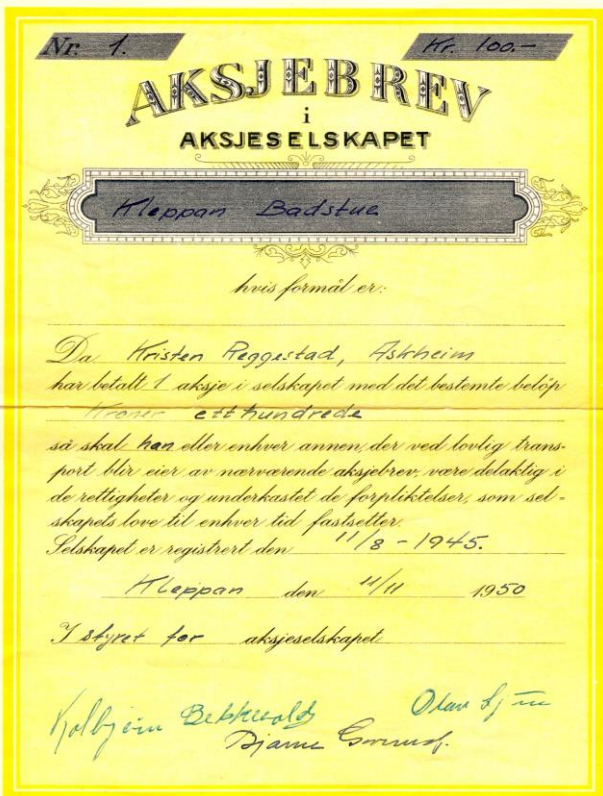 Nr. 1.
Kr. 100.-
AKSJEBREV
i
AKSJESELSKAPET
Kleppan Badstue
hvis formål er:
Da Kristen Reggestad, Askheim
har betalt 1 aksje i selskapet med det bestemte beløp
Kroner etthundrede
så skal han eller enhver annen, der ved lovlig trans-
port blir eier av nærværende aksjebrev, være delaktig i
de rettigheter og underkastet de forpliktelser, som sel-
skapets love til enhver tid fastsetter.
Selskapet er registrert den 11/8 - 1945.
Kleppan den 11/11 1950
I styret for aksjeselskapet
Kolbjørn
Olav
Bjarne